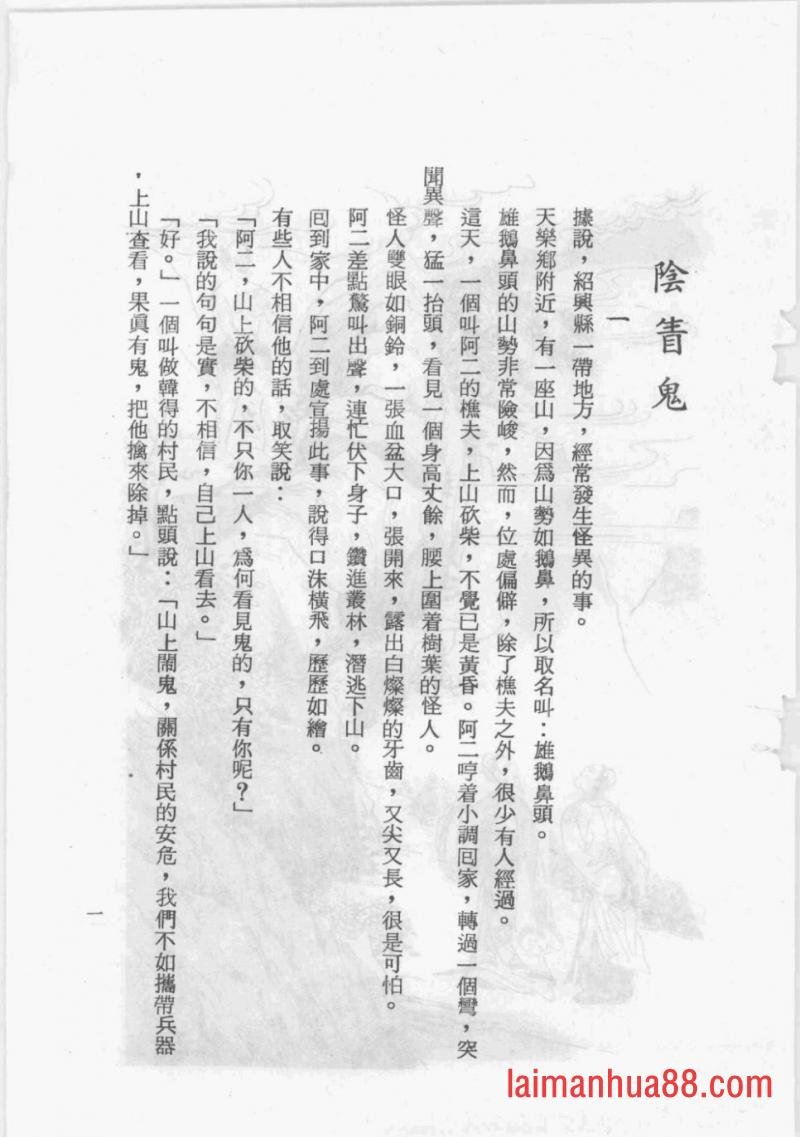 陰眚鬼
一
據說，紹興縣一帶地方，經常發生怪異的事。
天樂鄉附近，有一座山，因爲山勢如鵝鼻，所以取名叫：雄鵝鼻頭。
雄鵝鼻頭的山勢非常險峻，然而，位處偏僻，除了樵夫之外，很少有人經過。
這天，一個叫阿二的樵夫，上山砍柴，不覺已是黃昏。阿二哼着小調囘家，轉過一個彎，突
聞異聲，猛一抬頭，看見一個身高丈餘，腰上圍着樹葉的怪人。
怪人雙眼如銅鈴，一張血盆大口，張開來，露出白燦燦的牙齒，又尖又長，很是可怕。
阿二差點驚叫出聲，連忙伏下身子，鑽進叢林，潛逃下山。
囘到家中，阿二到處宣揚此事，說得口沫橫飛，歷歷如繪。
有些人不相信他的話，取笑說：
「阿二，山上砍柴的，不只你一人，爲何看見鬼的，只有你呢？」
「我說的句句是實，不相信，自己上山看去。」
「好。」一個叫做韓得的村民，點頭說：「山上鬧鬼，關係村民的安危，我們不如攜帶兵器
，上山查看，果眞有鬼，把他擒來除掉。」
一
laimanhua88.com